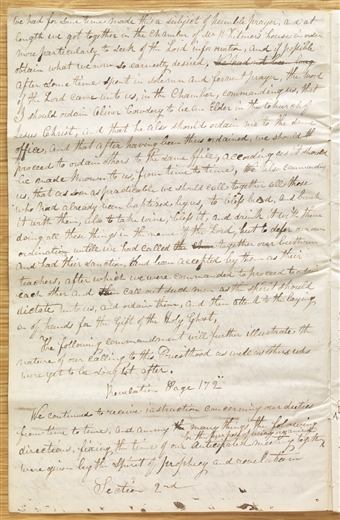 We had for some time made this a subject of humble prayer, and at
length we got together in the Chamber of Mr Whitmer's house in order
more particularly to seek of the Lord information, and if possible
obtain what we now so earnestly desired,
After some time spent in solemn and fervent prayer, the word
of the Lord came unto us, in the Chamber, commanding us, that
I should ordain Oliver Cowdery to be an Elder in the Church of
Jesus Christ, and that he also should ordain me to the same
office, and that after having been thus ordained, we should
proceed to ordain others to the same office, according as it should
be made known unto us, from time to time, also commanding
us, that as soon as practicable we should call together all those
who had already been baptized by us, to bless bread, and break
it with them, also to take wine, bless it, and drink it with them
doing all these things in the name of the Lord, but to defer our own
ordination untill we had called together our brethren
and had their sanction, and been accepted by them as their
teachers, after which we were commanded to proceed to ordain
each other and call out such men as the Spirit should
dictate unto us, and ordain them, and then attend to the laying
on of hands for the Gift of the Holy Ghost,
The following commandment will further illustrate the
nature of our calling to this Priesthood as well as others who
were yet to be sought after.
Revelation Page 172nd
We continued to receive instruction concerning our duties
from time to time, and among the many things the following
directions, fixing the time of our anticipated meeting together
to the purpose of being organized
were given by the Spirit of prophecy and revelation
Section 2nd